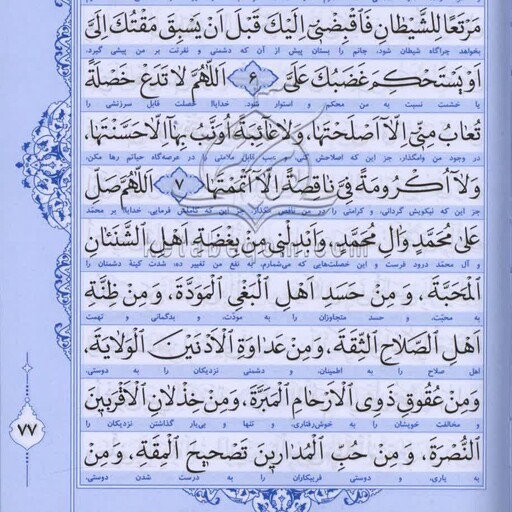 مَرْتَعًا لِلشَّيْطَانِ فَاقْبِضْنِي إِلَيْكَ قَبْلَ أَنْ يَسْبِقَ مَقْتُكَ إِلَيَّ
بخواهد چراگاه شیطان شود، جانم را بستان پیش از آن که دشمنی و نفرتت بر من پیشی گیرد.
اَوْ يَسْتَحْكِمَ غَضَبُكَ عَلَيَّ ۶ اَللّٰهُمَّ لَا تَدَعْ خَصْلَةً
یا خشمت نسبت به من محکم و استوار شود. خدایا! خصلت قابل سرزنشی را
تُعَابُ مِنِّي اِلَّا اَصْلَحْتَهَا، وَلَا عَائِبَةً اُوَنَّبُ بِهَا اِلَّا حَسَّنْتَهَا،
در وجود من وامگذار، جز این که اصلاحش کنی و عیب قابل ملامتی را در عرصه‌گاه حیاتم رها مکن،
وَلَا اُكْرُومَةً فِيَّ نَاقِصَةً اِلَّا اَتْمَمْتَهَا ۷ اَللّٰهُمَّ صَلِّ
جز این که نیکویش گردانی، و کرامتی را در من ناقص مگذار، جز این که کاملش فرمایی. خدایا! بر محمّد
عَلَى مُحَمَّدٍ وَاٰلِ مُحَمَّدٍ، وَاَبْدِلْنِي مِنْ بِغْضَةِ اَهْلِ الشَّنَئَانِ
و آل محمّد درود فرست و این خصلت‌هایی که می‌شمارم، به نفع من تغییر ده: شدت کینهٔ دشمنان را
الْمَحَبَّةَ، وَ مِنْ حَسَدِ اَهْلِ الْبَغْيِ الْمَوَدَّةَ، وَ مِنْ ظِنَّةِ
به محبّت، و حسد متجاوزان را به مودّت، و بدگمانی و تهمت
اَهْلِ الصَّلَاحِ الثِّقَةَ، وَ مِنْ عَدَاوَةِ الْاَدْنَيْنَ الْوَلَايَةَ،
اهل صلاح را به اطمینان، و دشمنی نزدیکان را به دوستی،
وَمِنْ عُقُوقِ ذَوِي الْاَرْحَامِ الْمَبَرَّةَ، وَ مِنْ خِذْلَانِ الْاَقْرَبِينَ
و مخالفت خویشان را به خوش‌رفتاری، و تنها و بی‌یار گذاشتن نزدیکان را
۷۷
النُّصْرَةَ، وَ مِنْ حُبِّ الْمُدَارِينَ تَصْحِيحَ الْمِقَةِ، وَ مِنْ
به یاری، و دوستی فریبکاران را به درست شدن دوستی،